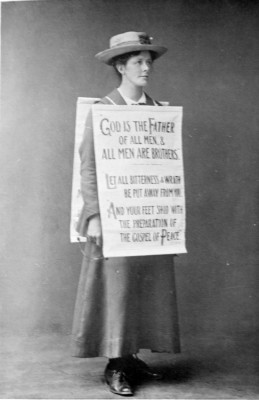 GOD IS THE FATHER
OF ALL MEN, &
ALL MEN ARE BROTHERS.
LET ALL BITTERNESS & WRATH
BE PUT AWAY FROM YOU,
AND YOUR FEET SHOD WITH
THE PREPARATION OF
THE GOSPEL OF PEACE